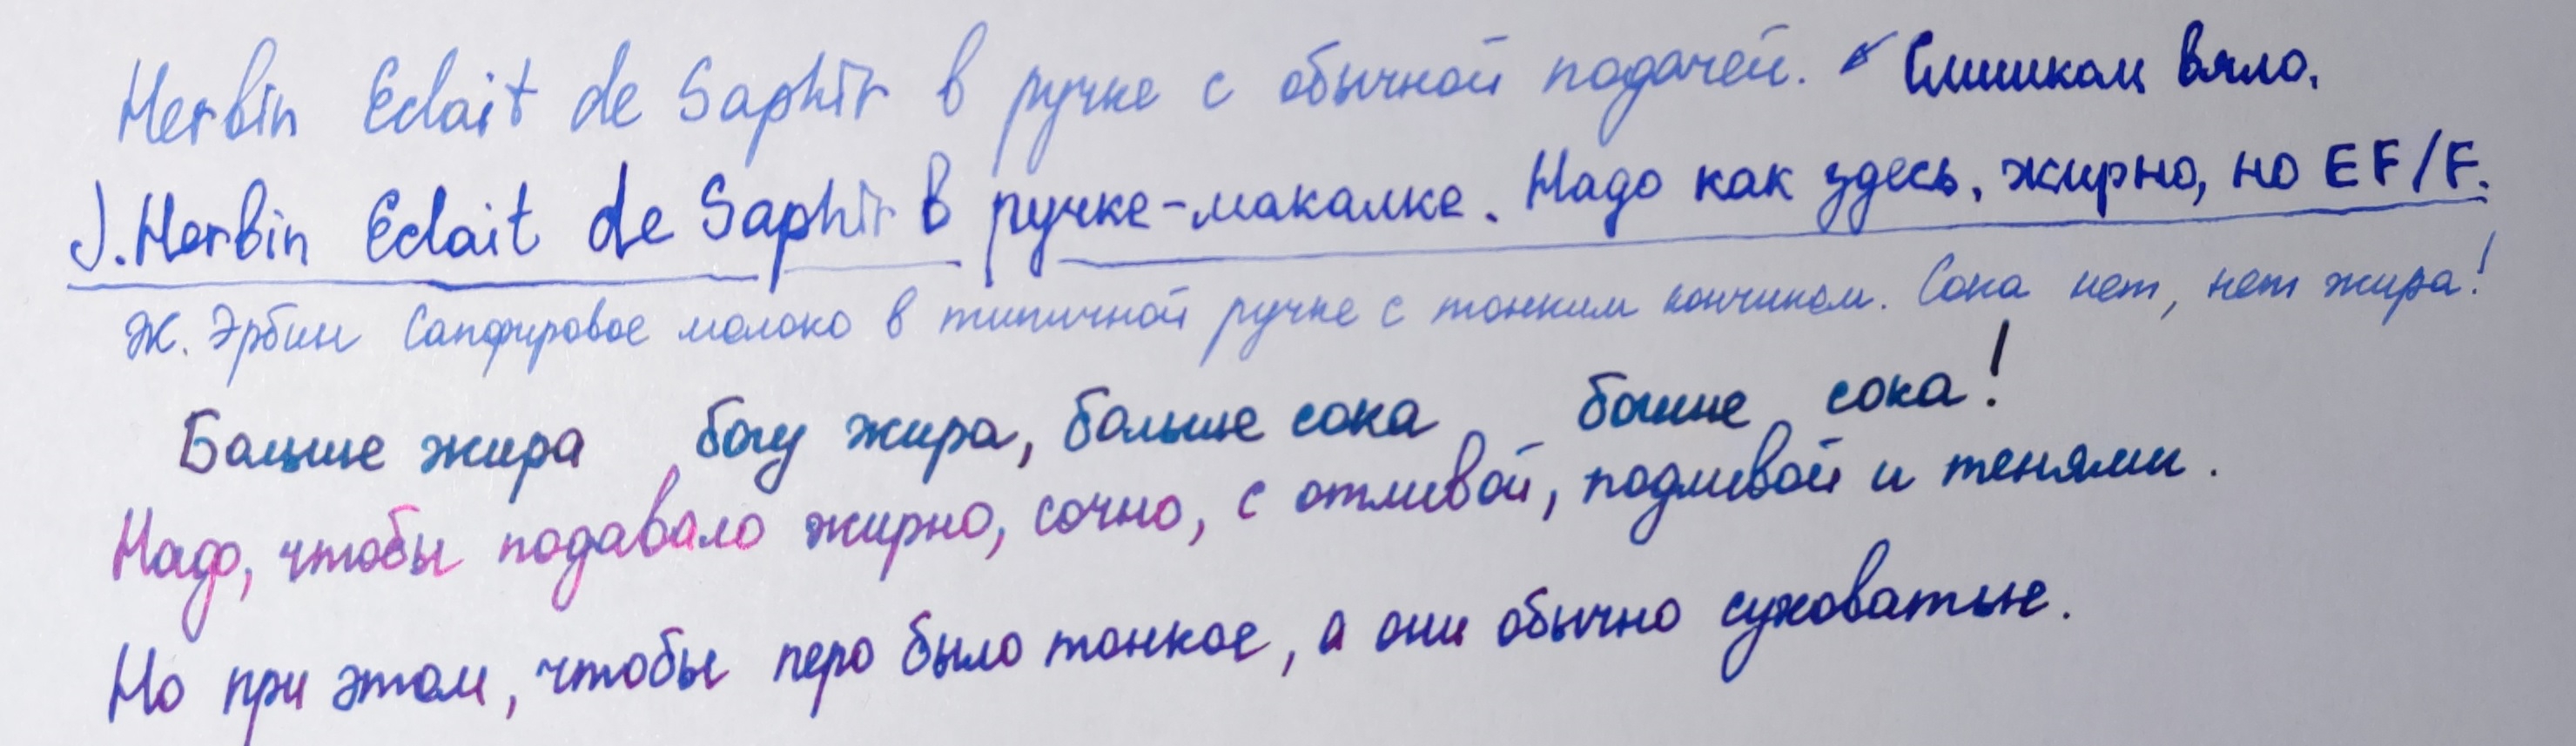 Herbin Eclait de Saphir в ручке с обычной подачей. ↙ Слишком вяло.
J. Herbin Eclait de Saphir в ручке-макалке. Надо как здесь, жирно, но EF/F.
Ж. Эрбин Сапфировое молоко в типичной ручке с тонким кончиком. Сока нет, нет жира!
Больше жира, богу жира, больше сока, больше сока!
Надо, чтобы подавало жирно, сочно, с отливой, подливой и тенями.
Но при этом, чтобы перо было тонкое, а они обычно суховатые.